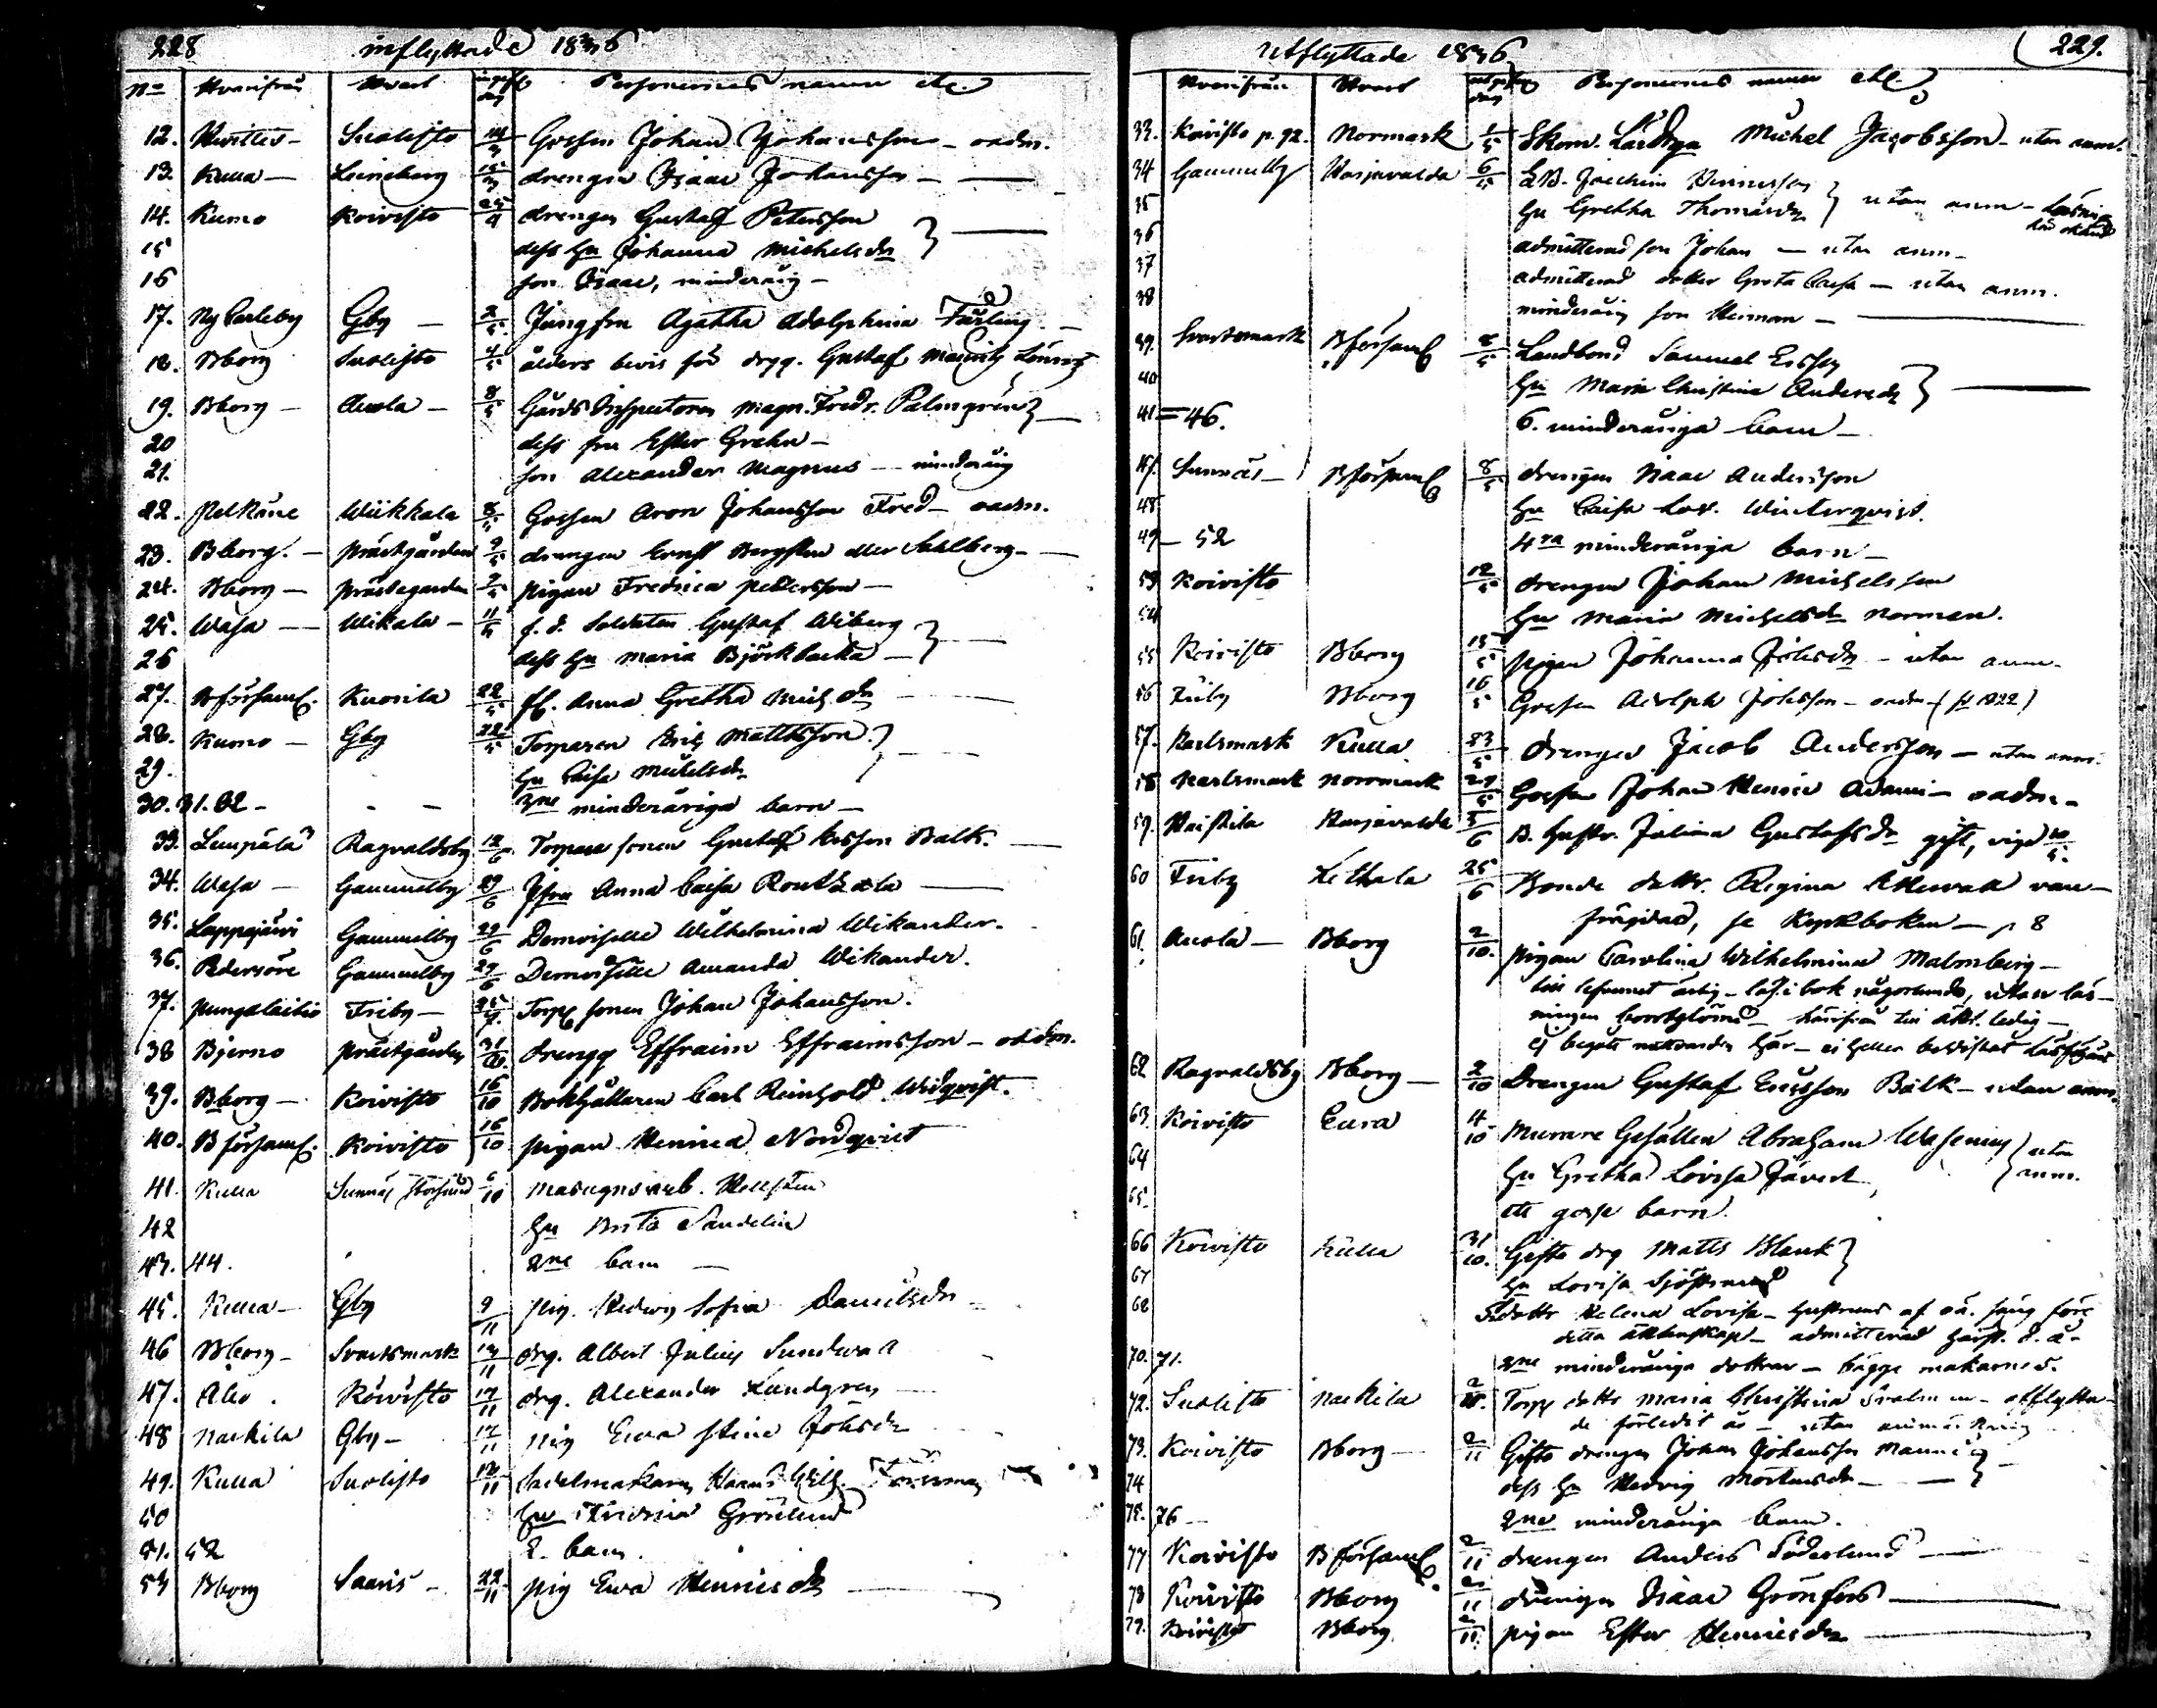 228 inflyttade 1836
No Hvarifrån Hvart Personernes namn etc.
12. Suolisto 14/3 Gossen Johan Johansson oadm.
13. Kulla Leineberg 15/3 drengen Isaac Johansson
14. Kumo Koivisto 25/4 drengen Gustaf Petersson
15 dess hu Johanna Michelsdr
16 son Isaac, minderårig
17. Ny Carleby Gby 2/5 Jungfru Agatha Adolphina
18. Bborg Suolisto 4/5 ålders bevis för drgg. Gustaf Mauritz
19. Bborg Anola 8/5 Gårds Inspectoren Magn. Fredr. Palmgren
20 dess fru Ester Grehn
21. son Alexander Magnus minderårig
22. Pelkäne Wiikkala 8/5 Gossen Aron Johansson Fred oadm.
23. Bborg. prästgården 9/5 drengen Ernst Bergsten eller Sahlberg
24. Bborg prästegården 9/5 pigan Fredrica Pettersson
25. Wasa Wikala 11/5 f. d. Soldaten Gustaf Wiberg
26 dess hu Maria Björkbacka
27. Bförsaml. Kuorila 22/5 Anna Gretha Mich.dr
28. Kumo Gby 22/5 Torparen Erik Mattsson
29. hu Caisa Michelsdr
30. 31. 32 3ne minderåriga barn
33. Lempälä Ragvaldsby 12/6 Torpare sonen Gustaf Ersson Balk.
34. Wasa Gammelby 29/6 Jfru Anna Caisa
35. Lappajärvi Gammelby 29/6 Demoiselle Wilhelmina Wikander.
36. Pedersöre Gammelby 29/6 Demoiselle Amanda Wikander.
37. pungalaitio Friby 25/7. Torp sonen Johan Johansson.
38 Bjerno prästgården drengg Effraim Effraimsson oadm.
39. Bborg Koivisto 16/10 Bokhållaren Carl Reinhold Widqvist.
40. B församl. Koivisto 16/10 pigan Henrica Nordqvist
41. Kulla Sunnäs 6/10 Masugnsarb. Hellsten
42 hu Brita Sandelin
43. 44. 2ne barn
45. Kulla Gby 9/11 pig. Hedvig Sofia Danielsdr
46 Bborg Svartsmark 13/11 drg. Albert Julius Sundwall
47. Åbo. Koivisto 17/11 drg. Alexander Lundgren
48 Nackila Gby 17/11 pig Ewa Stina Johsdr
49. Kulla Suolisto 18/11 Sadelmakaren Wilh.
50 hu Fredrica Grönlund
51. 52 2. barn.
53 Bborg Saaris 22/11 pig Ewa Henricsdr
Utflyttade 1836 229.
Hvarifrån Hvart Personernes namn etc
33. Koivisto p. 92. Normark 1/5 Skom. Lärling Michel Jacobsson utan anm.
34 Gammelby Harjavalda 6/5 Joachim Henricsson
35 hu Gretha Thomasdr utan anm
36 admitterad son Johan utan anm
37 admitterad dotter Greta Caisa utan anm.
38 minderårig son Herman
39. Svartsmark B församl 8/5 Landbond Samuel Ersson
40 hu Maria Christina Andersdr
41 = 46. 6. minderåriga barn
47. Sunnäs B församl 8/5 drengen Isaac Andersson
48 hu Caisa Lov. Winterqvist.
49 52 4ra minderåriga barn
53 Koivisto 12/5 drengen Johan Michelsson
54 hu Maria Michelsdr Norman.
55 Koivisto Bborg 15/5 pigan Johanna Johsdr utan anm.
56 Friby Bborg 16/5 Gossen Adolph Johsson oadm (f 1822)
57. Karlsmark Kulla 23/5 drengen Jacob Andersson utan anm.
58 Karlsmark Norrmark 29/5 Gossen Johan Henric Adami oadm
59. Haistila Harjavalda 5/6 B. hustr. Julina Gustafsdr gift, vigd
60 Friby Lethala 25/6 Bonde dottr. Regina van-
frägdad, se Kyrkboken p 8
61. Anola Bborg 2/10. pigan Carolina Wilhelmina Malmberg
till lefvernet ärlig läs. i bok någorlunda, utan läs-
ningen bortglömd härifrån till äkt. ledig
ej begått nattvarden här ej heller bevistat läsförhör
62 Ragvaldsby Bborg 2/10 Drengen Gustaf Ericsson Balk utan anm.
63. Koivisto Eura 4/10 Murare Gesällen Abraham Wasenius utan
64 hu Gretha Lovisa anm.
65 ett gosse barn.
66 Koivisto Kulla 31/10. Gifte drg Matts Blank
67 hu Lovisa Sjöstrand
68 dottr Helena Lovisa hustruns af oä. säng före
detta äktenskap admitterad
70. 71. 2ne minderåriga döttrar bägge makarnes.
72. Suolisto Nackila Torp dottr Maria Christina utflytta-
de förledit år utan anmärkning
73. Koivisto Bborg 2/11 Gifte drengen Johan Johansson
74 dess hu Hedvig Mårtensdr
75. 76 2ne minderåriga barn.
77 Koivisto B församl. 2/11 drengen Anders Söderlund
78 Koivisto Bborg 2/11 drengen Isaac Grönfors
79. Koivisto Bborg 2/11 pigan Ester Henricsdr